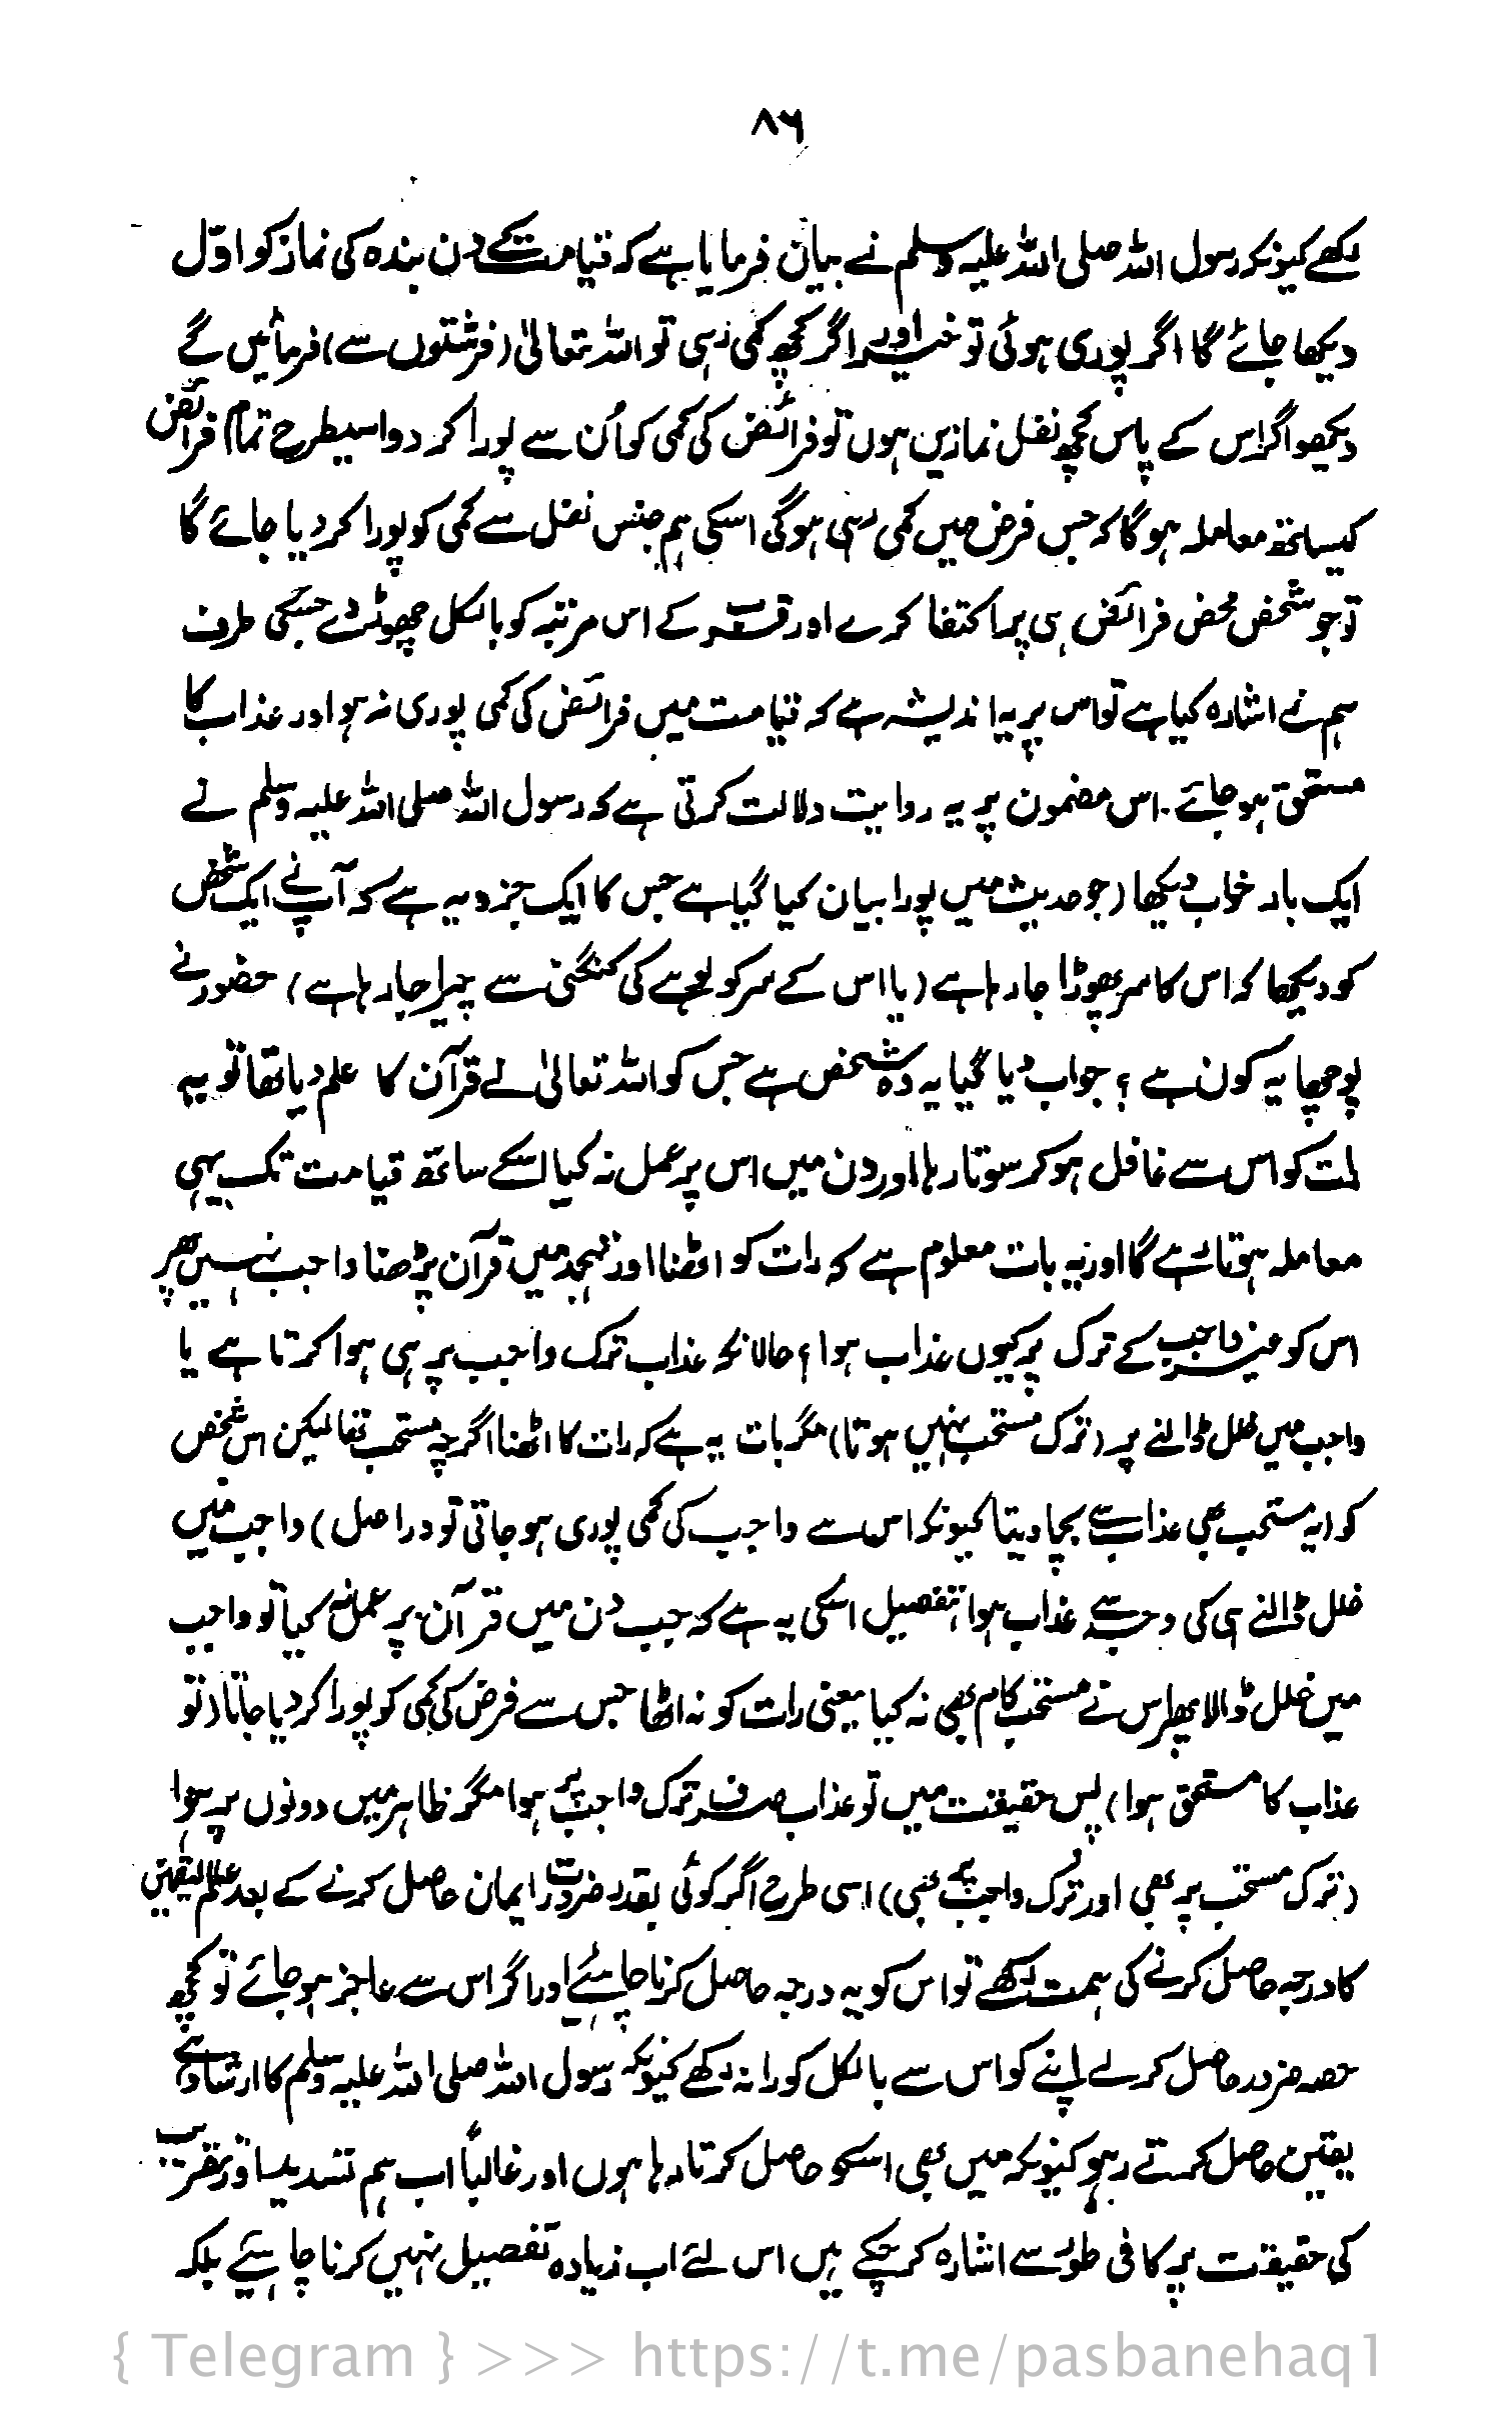 ۸۶
رکھے کیونکہ رسول اللہ صلی اللہ علیہ وسلم نے بیان فرمایا ہے کہ قیامت کے دن بندہ کی نماز کو اوّل
دیکھا جائے گا اگر پوری ہوئی تو خیر اور اگر کچھ کمی رہی تو اللہ تعالیٰ (فرشتوں سے) فرمائیں گے
دیکھو اگر اس کے پاس کچھ نفل نمازیں ہوں تو فرائض کی کمی کو اُن سے پورا کر دو اسیطرح تمام فرائض
کیساتھ معاملہ ہوگا کہ جس فرض میں کمی رہی ہوگی اسکی ہم جنس نفل سے کمی کو پورا کر دیا جائے گا
تو جو شخص محض فرائض ہی پر اکتفا کرے اور قرب کے اس مرتبہ کو بالکل چھوڑ دے جسکی طرف
ہم نے اشارہ کیا ہے تو اس پر یہ اندیشہ ہے کہ قیامت میں فرائض کی کمی پوری نہ ہو اور عذاب کا
مستحق ہو جائے۔ اس مضمون پر یہ روایت دلالت کرتی ہے کہ رسول اللہ صلی اللہ علیہ وسلم نے
ایک بار خواب دیکھا (جو حدیث میں پورا بیان کیا گیا ہے جس کا ایک جزو یہ ہے کہ آپ نے ایک شخص
کو دیکھا کہ اس کا سر پھوڑا جا رہا ہے (یا اس کے سر کو لوہے کی کنگھی سے چیرا جا رہا ہے) حضور نے
پوچھا یہ کون ہے ؟ جواب دیا گیا یہ وہ شخص ہے جس کو اللہ تعالیٰ نے قرآن کا علم دیا تھا تو یہ
رات کو اس سے غافل ہو کر سوتا رہا اور دن میں اس پر عمل نہ کیا اسکے ساتھ قیامت تک یہی
معاملہ ہوتا رہے گا اور یہ بات معلوم ہے کہ رات کو اٹھنا اور تہجد میں قرآن پڑھنا واجب نہیں پھر
اس کو غیر واجب کے ترک پر کیوں عذاب ہوا ؟ حالانکہ عذاب ترک واجب پر ہی ہوا کرتا ہے یا
واجب میں خلل ڈالنے پر (ترک مستحب پر نہیں ہوتا) مگر بات یہ ہے کہ رات کا اٹھنا اگرچہ مستحب تھا لیکن اس شخص
کو (یہ مستحب بھی عذاب سے بچا دیتا کیونکہ اس سے واجب کی کمی پوری ہو جاتی تو دراصل) واجب میں
خلل ڈالنے ہی کی وجہ سے عذاب ہوا، تفصیل اسکی یہ ہے کہ جب دن میں قرآن پر عمل نہ کیا تو واجب
میں خلل ڈالا پھر اس نے مستحب کام بھی نہ کیا یعنی رات کو نہ اٹھا جس سے فرض کی کمی کو پورا کر دیا جاتا (تو
عذاب کا مستحق ہوا) پس حقیقت میں تو عذاب صرف ترک واجب پر ہوا مگر ظاہر میں دونوں پر ہوا
(ترک مستحب پر بھی اور ترک واجب پر بھی) اسی طرح اگر کوئی بقدر ضرورت ایمان حاصل کرنے کے بعد علم الیقین
کا درجہ حاصل کرنے کی ہمت رکھے تو اس کو یہ درجہ حاصل کرنا چاہئے اور اگر اس سے عاجز ہو جائے تو کچھ
حصہ ضرور حاصل کرلے اپنے کو اس سے بالکل کورا نہ رکھے کیونکہ رسول اللہ صلی اللہ علیہ وسلم کا ارشاد ہے
یقین حاصل کرتے رہو کیونکہ میں بھی اسکو حاصل کرتا رہا ہوں اور غالباً اب ہم تشدید اور تقریب
کی حقیقت پر کافی طور سے اشارہ کر چکے ہیں اس لئے اب زیادہ تفصیل نہیں کرنا چاہیئے بلکہ
{ Telegram } >>> https://t.me/pasbanehaq1